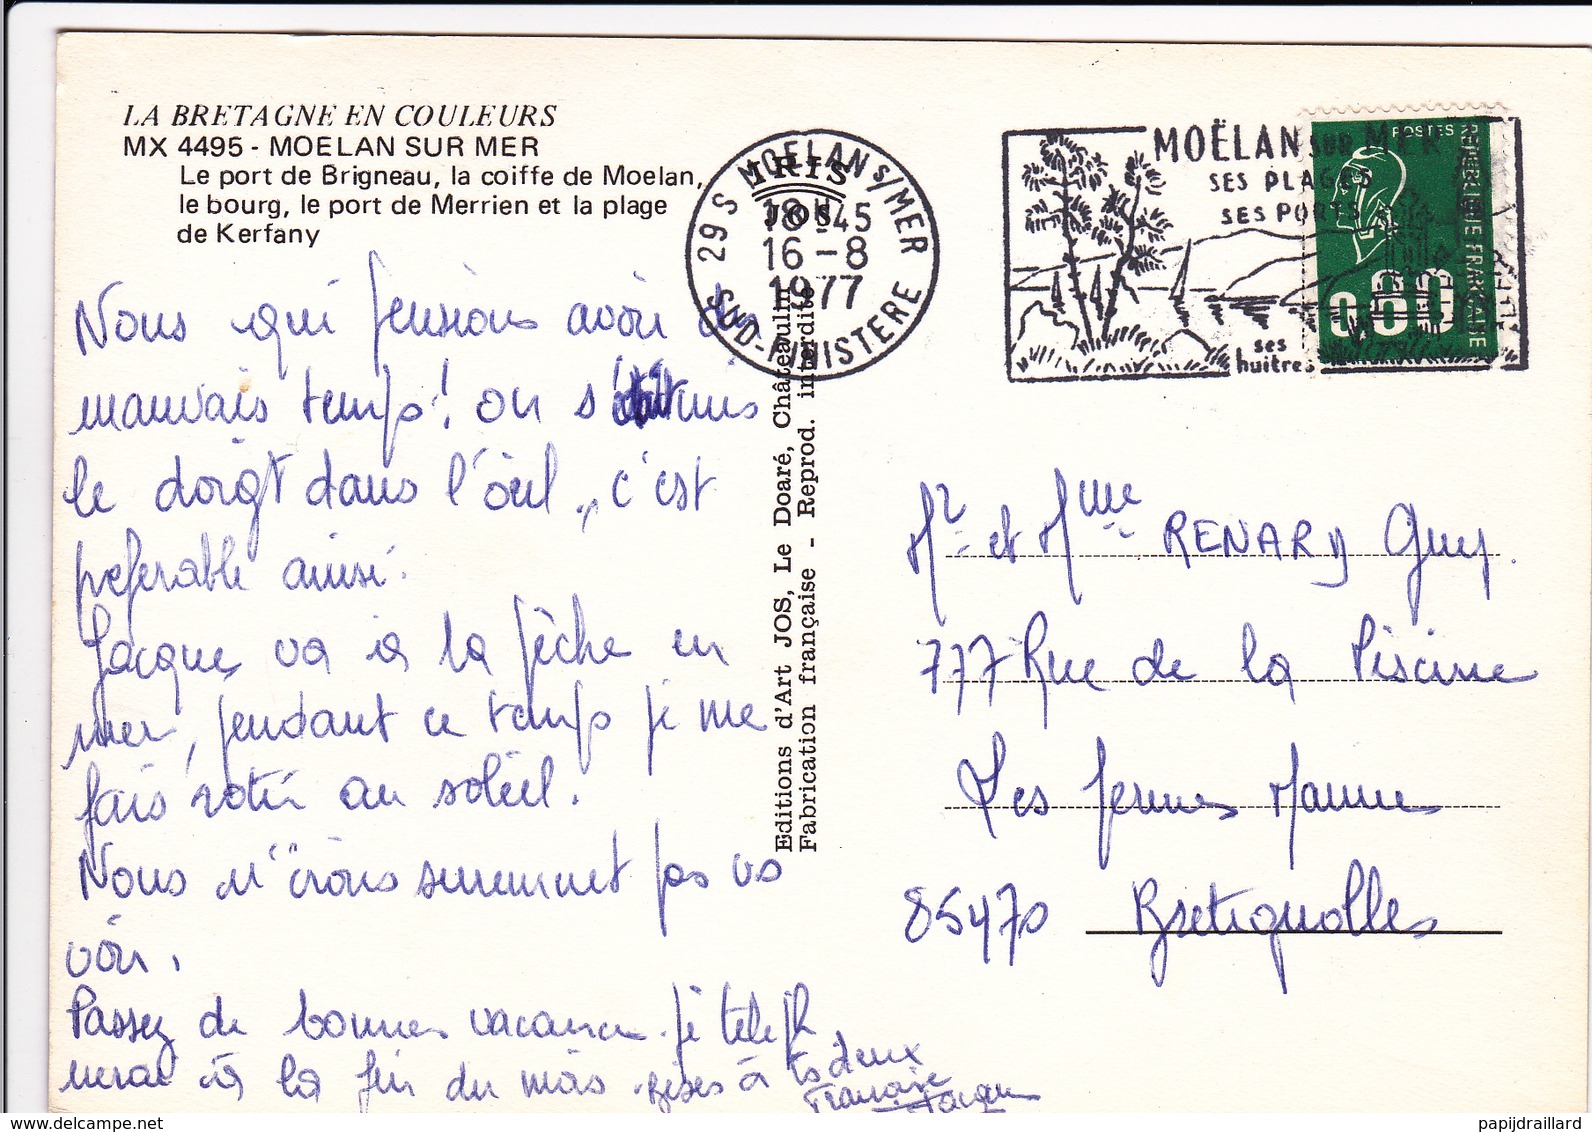 LA BRETAGNE EN COULEURS
MX 4495 - MOELAN SUR MER
Le port de Brigneau, la coiffe de Moelan,
le bourg, le port de Merrien et la plage
de Kerfany
Nous qui pensions avoir du
mauvais temps! on s'était mis
le doigt dans l'œil, c'est
preferable ainsi.
Jacques va à la pêche en
mer, pendant ce temps je me
fais rotir au soleil.
Nous n'irons surement pas vs
voir.
Passez de bonnes vacances. Je téléph
nerai à la fin du mois. Bises à ts deux
Françoise
Jacques
IRIS
JOS
29 S MOELAN S/MER
18H45
16-8
1977
SUD-FINISTERE
Editions d'Art JOS, Le Doaré, Châteaulin
Fabrication française - Reprod. interdite
MOËLAN SUR MER
SES PLAGES
SES PORTS
ses
huitres
POSTES
REPUBLIQUE FRANÇAISE
0.80
Mr et Mme RENARD Guy
777 Rue de la Piscine
Les fermes Marines
85470 Bretignolles
papijdraillard
www.delcampe.net